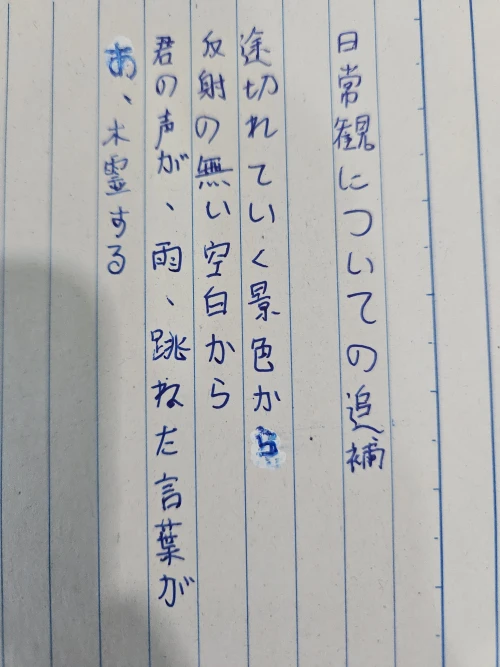 日常観についての追補
途切れていく景色から
反射の無い空白から
君の声が、雨、跳ねた言葉が
あ、木霊する